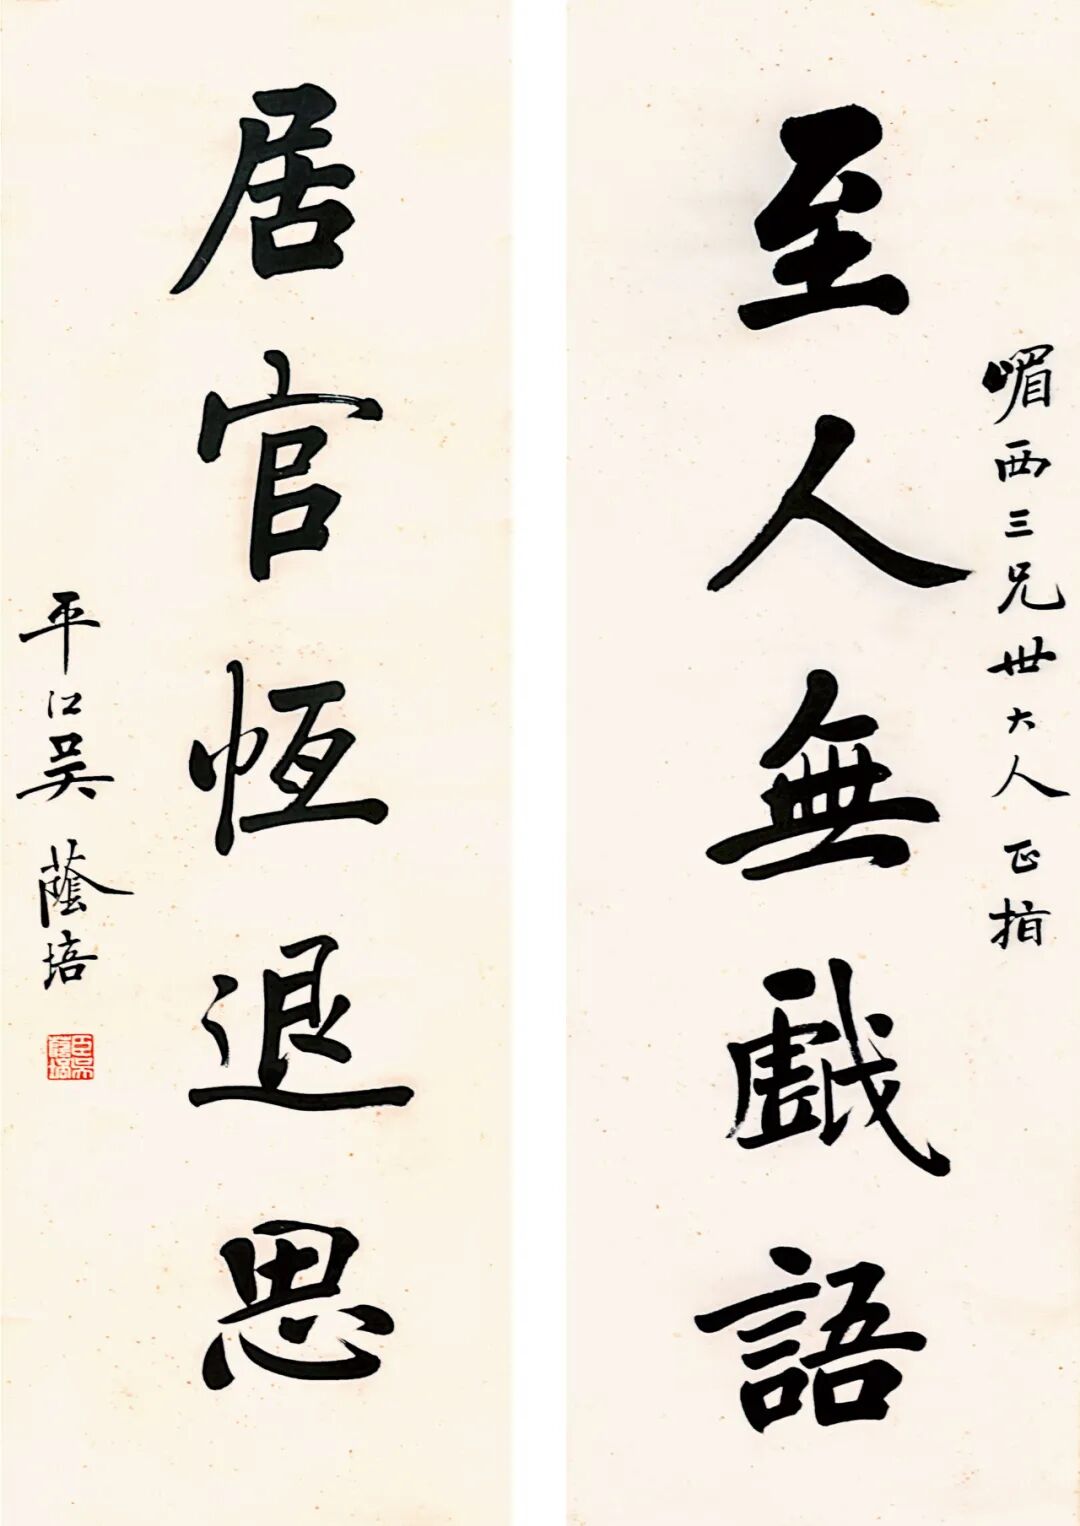 嵋西三兄世大人正指
至人無戲語
居官恆退思
平江吳蔭培
臣吳蔭培